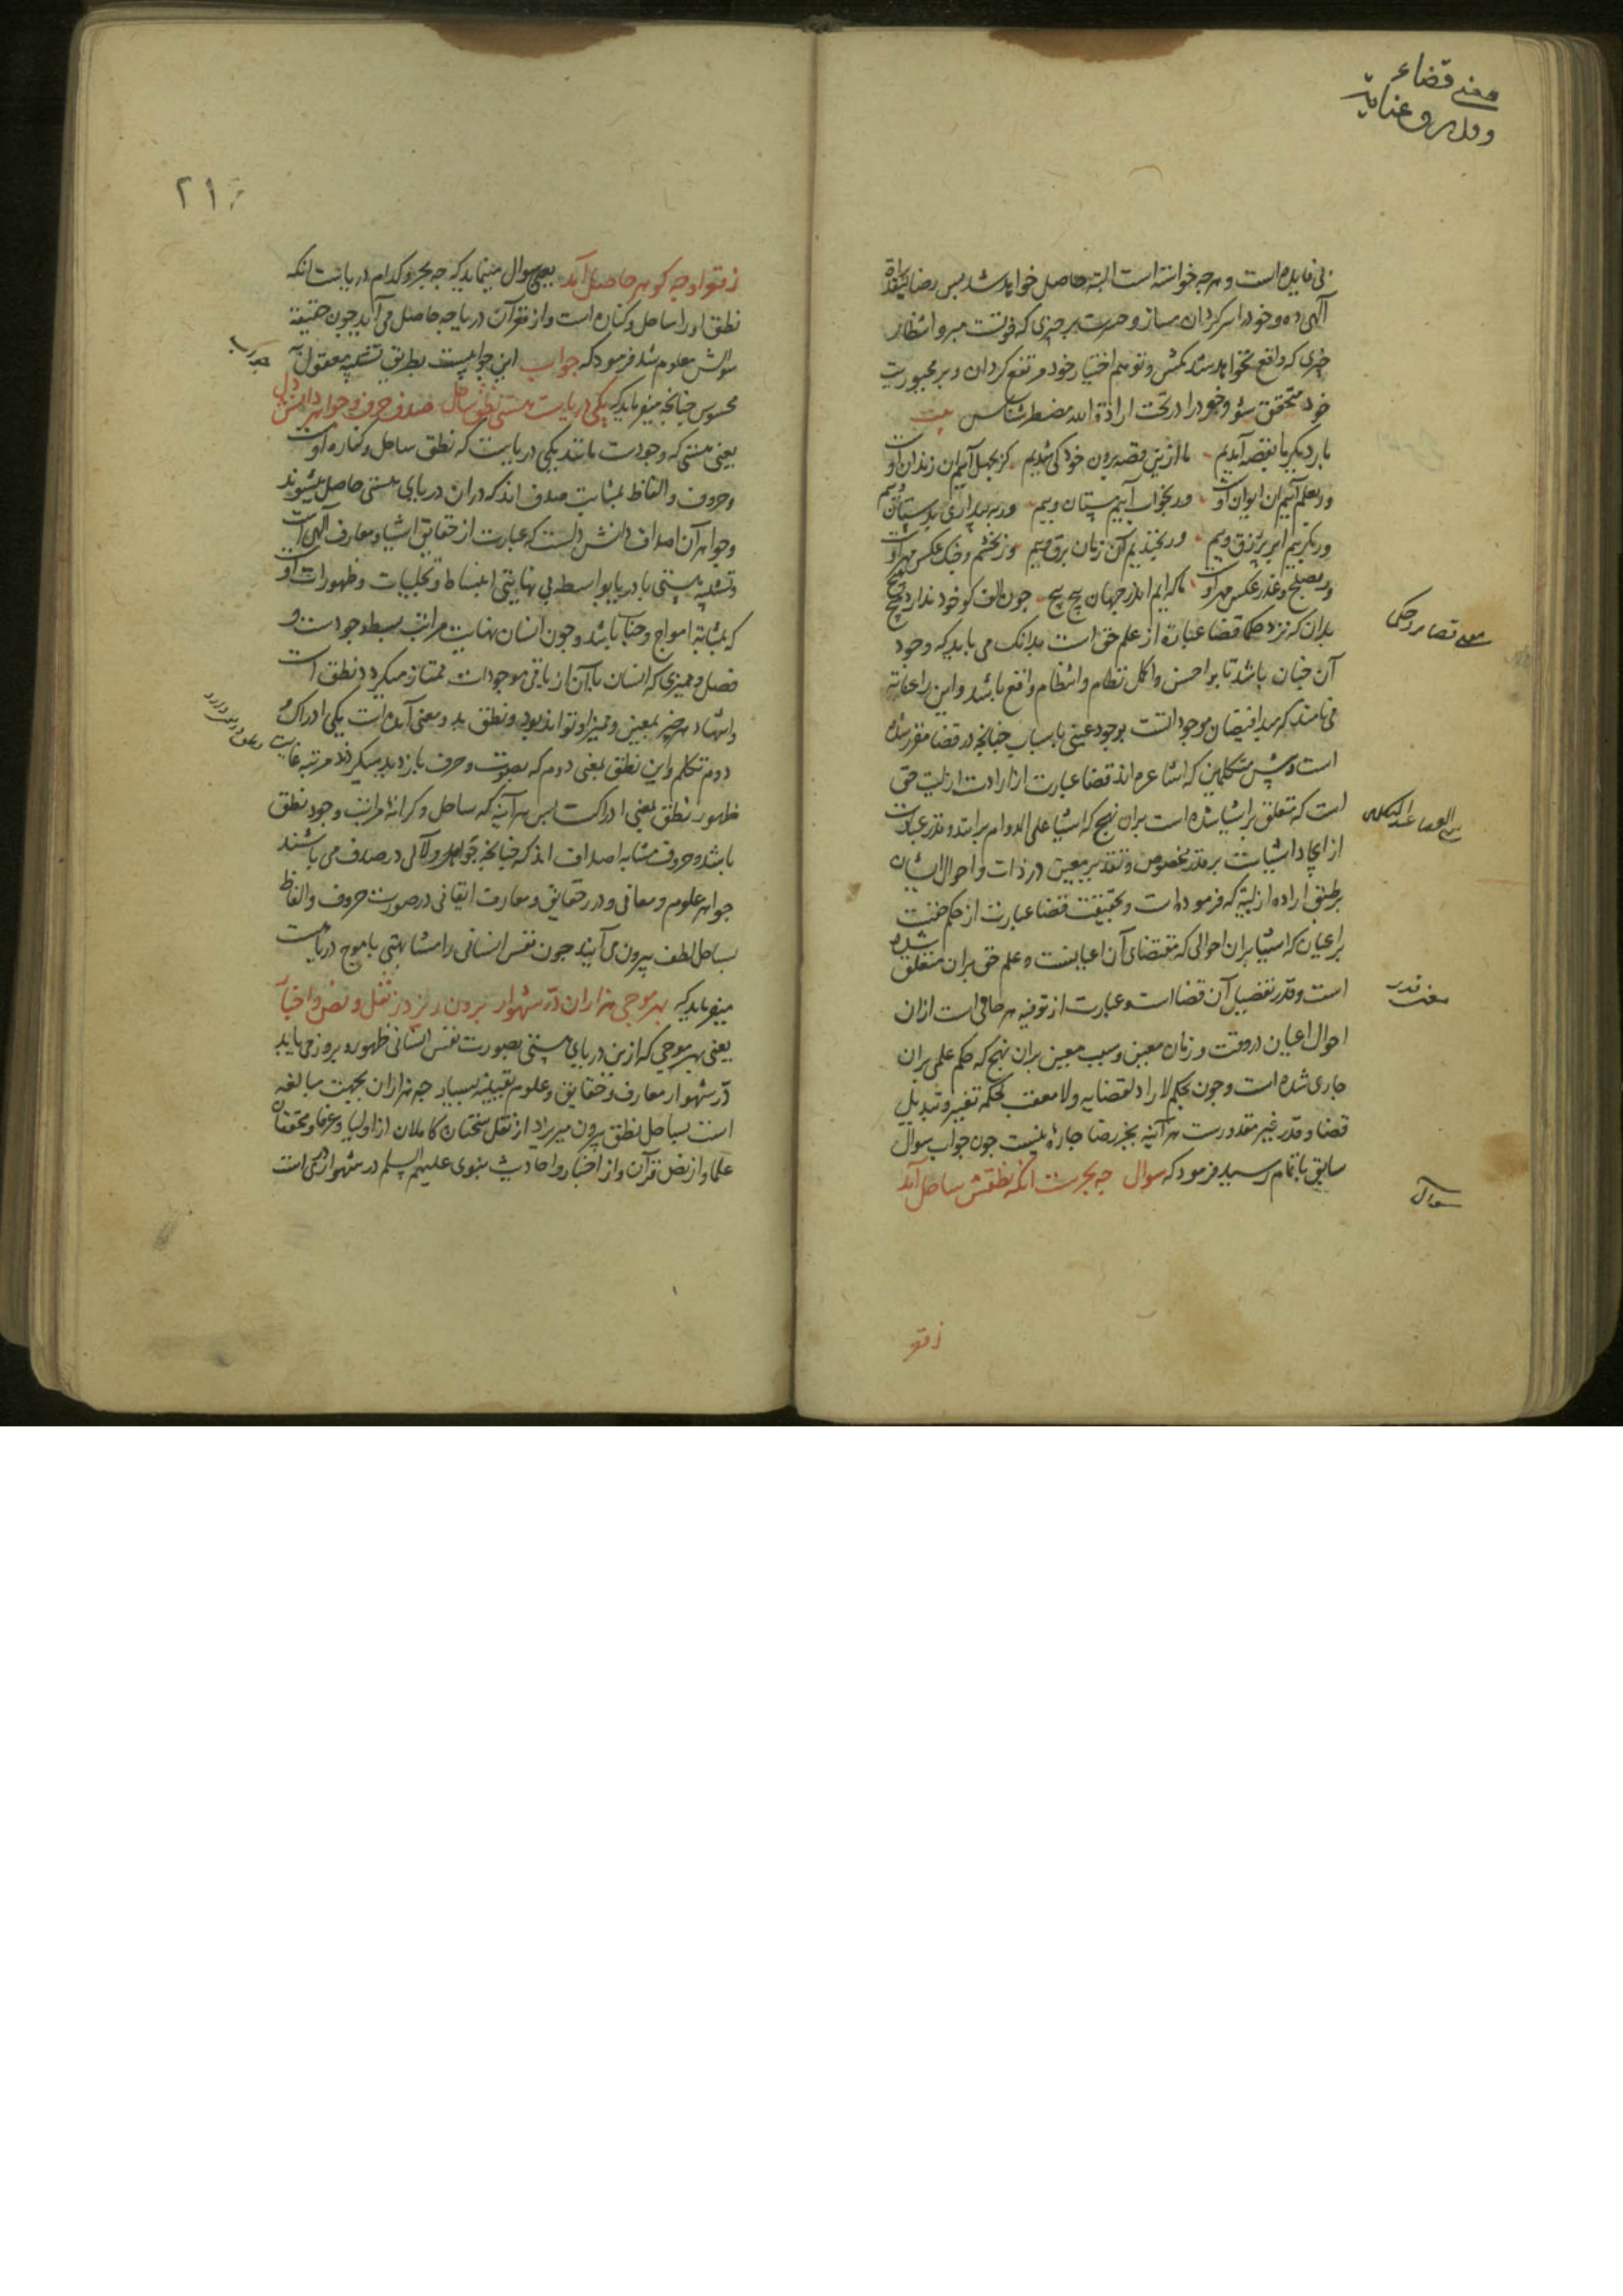 معنی قضاء
وقدر و عنایت
بی فایده است و هرچه خواسته است البته حاصل خواهد شد پس رضا بقضاء
آلهی ده و خود را سرکردان مساز و حسرت بر چیزی که فوتست مبر و انتظار
چیزی که واقع نخواهد شد مکش و توهم اختیار خود مرتفع کردان و بر مجبوریت
خود متحقق شو و خود را در تحت ارادة الله مضطر شناس بیت
بار دیکر ما بقصه آمدیم ما ازین قصه برون خود کی شدیم کر بجهل آییم آن زندان اوست
ور بعلم آییم آن ایوان اوست ور بخواب آییم مستان وییم ور به بیداری بدستان وییم
ور بکرییم ابر پر زرق وییم ور بخندیم آن زمان برق وییم ور بخشم و جنک عکس قهر اوست
ور بصلح و عذر عکس مهر اوست ما که ایم اندر جهان پیچ پیچ چون الف کو خود ندارد هیچ هیچ
بدان که نزد حکما قضا عبارة از علم حق است بدانک می باید که وجود
آن چنان باشد تا بر احسن و اکمل نظام و انتظام واقع باشد و این را عنایة
می نامند که مبدأ فیضان موجوداتست بوجود عینی باسباب چنانچه در قضا مقرر شده
است و پیش متکلمین که اشاعره اند قضا عبارت از ارادت ازلیت حق
است که متعلق بر اشیا شده است بران نهج که اشیا علی الدوام برانند و قدر عبارت
از ایجاد اشیاست بر قدر مخصوص و تقدیر معین در ذات و احوال ایشان
بر طبق اراده ازلیة که فرموده است و بحقیقت قضا عبارت از حکم حقست
بر اعیان که اشیا بران احوالی که مقتضای آن اعیانست و علم حق بران متعلق شده
است و قدر تفصیل آن قضا است و عبارت از توفیه هر حالی است ازان
احوال اعیان در وقت و زمان معین و سبب معین بران نهج که حکم علمی بران
جاری شده است و چون بحکم لا راد لقضایه و لا معقب لحکمه تغییر و تبدیل
قضا و قدر غیر مقدورست هر آینه بجز رضا چارهٔ نیست چون جواب سوال
سابق باتمام رسید فرمود که سوال چه بحرست آنکه نطقش ساحل آمد
زقعر
معنی قضا نزد حکما
معنی قدر
سوال
٢١
زقعر او چه کوهر حاصل آمد یعنی سوال مینماید که چه بحر و کدام دریاست آنکه
نطق او را ساحل و کناره است و از قعر آن دریا چه حاصل می آید چون حقیقة
سوالش معلوم شد فرمود که جواب این جوابیست بطریق تشبیه معقول به
محسوس چنانچه میفرماید که یکی دریاست هستی نطق ساحل صدف حرف و جواهر دانش دل
یعنی هستی که وجودست مانند یکی دریاییست که نطق ساحل و کناره اوست
و حروف و الفاظ بمثابت صدف اند که دران دریای هستی حاصل میشوند
و جواهر آن اصداف دانش دلست که عبارت از حقایق اشیا و معارف آلهی است
و تشبیه هستی با دریا بواسطه بی نهایتی انبساط و تجلیات و ظهورات اوست
که بمثابة امواج و حباب باشد و چون انسان نهایت مراتب بسط وجودست و
فصل و ممیزی که انسان بآن از باقی موجودات ممتاز میکردد نطق است
دوم تکلم و این نطق بمعنی دوم که بصوت و حرف باز دید میکردد مرتبه غایت
ظهور نطق بمعنی ادراکست پس هر آینه که ساحل و کرانهٔ مراتب وجود نطق
باشد و حروف مشابه اصداف اند که چنانچه جواهر و لآلی در صدف می باشند
جواهر علوم و معانی و درر حقایق و معارف ایقانی در صورت حروف و الفاظ
بساحل لطف بیرون می آیند چون نفس انسانی را مشابهتی با موج دریاست
میفرماید که بهر موجی هزاران در شهوار برون ریزد ز نقل و نص و اخبار
یعنی بهر موجی که ازین دریای هستی بصورت نفس انسانی ظهور و بروز می یابد
در شهوار معارف و حقایق و علوم یقینیه بسیار چه هزاران بجهت مبالغه
است بساحل نطق بیرون میریزد از نقل سخنان کاملان از اولیا و عرفا و محققان
علما و از نص قرآن و از اخبار و احادیث نبوی علیهم السلم در شهوار دری است
جواب